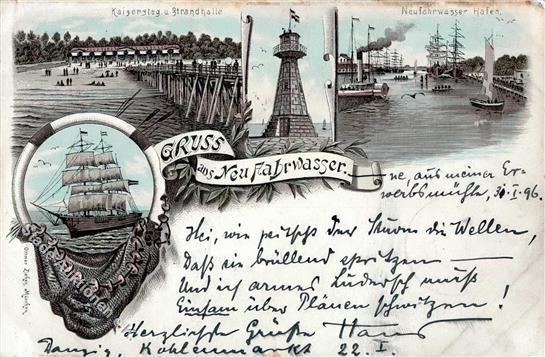 Kaisersteg u. Strandhalle
Neufahrwasser Hafen.
GRUSS
aus Neu Fahrwasser.
ne, aus meiner Er-
werbsmühle, 31.I.96.
Hei, wie peitscht der Sturm die Wellen,
Daß sie brüllend spritzen —
Und ich armes Luder muß
Einsam über Plänen schwitzen!
Herzlichste Grüße Hans
Danzig, Kohlenmarkt 22.I.